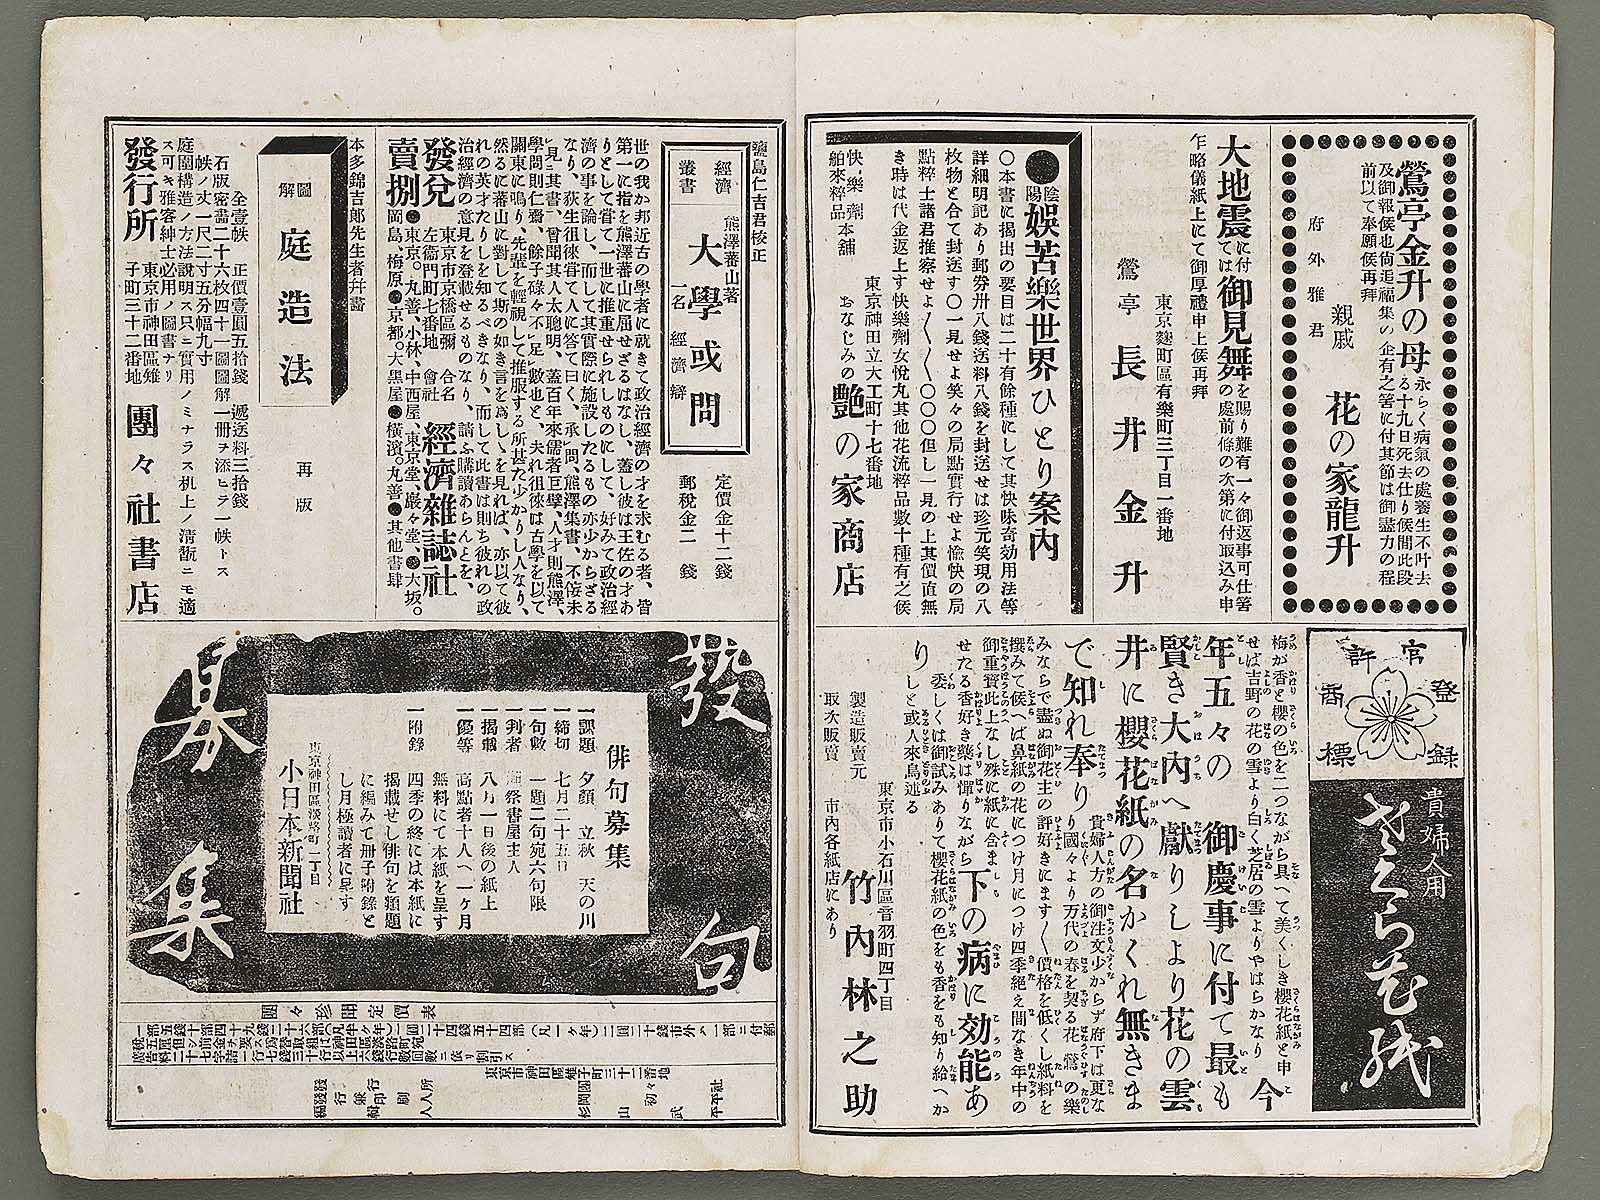 鶯亭金升の母永らく病氣の處養生不叶去
る十九日死去仕り候間此段
及御報候也尚追福集の企有之筈に付其節は御盡力の程
前以て奉願候再拜
親戚 花の家龍升
府外雅君
大地震に付ては御見舞を賜り難有一々御返事可仕筈
の處前條の次第に付取込み申
乍略儀紙上にて御厚禮申上候再拜
東京麹町區有樂町三丁目一番地
鶯亭 長井金升
●陰陽娯苦樂世界ひとり案内
〇本書に掲出の要目は二十有餘種にして其快味奇効用法等
詳細明記あり郵券卅八錢送料八錢を封送せは珍元笑現の八
枚物と合て封送す〇一見せよ笑々の局點實行せよ愉快の局
點粹士諸君推察せよ〱〱〇〇〇但し一見の上其價直無
き時は代金返上す快樂劑女悅丸其他花流粹品數十種有之候
快樂劑
舶來粹品本舗
東京神田立大工町十七番地
おなじみの 艶の家商店
官許
登録
商標
貴婦人用
さくら花紙
梅が香と櫻の色を二つながら具へて美くしき櫻花紙と申
せば吉野の花の雪より白く芝居の雪よりやはらかなり 今
年五々の 御慶事に付て最も
賢き大内へ獻りしより花の雲
井に櫻花紙の名かくれ無きま
で知れ奉り貴婦人方の御注文少からず府下は更な
り國々より万代の春を契る花鶯の樂
みならで盡ぬ御花主の許好きにます〱價格を低くし紙料を
撰みて候へば鼻紙の花につけ月につけ四季絶え間なき年中の
御重寶此上なし殊に紙に含ま
せたる香好き藥は憚りながら下の病に効能あ
り 委しくは御試みありて櫻花紙の色をも香をも知り給へか
しと或人來島述る
東京市小石川區音羽町四丁目
製造販賣元 竹内林之助
取次販賣 市內各紙店にあり
鹽島仁吉君校正
經濟叢書
熊澤蕃山著
大學或問
一名 經濟辯
定價金十二錢
郵稅金二錢
世の我か邦近古の學者に就きて政治經濟の才を求むる者、皆
第一に指を熊澤蕃山に屈せざるはなし、蓋し彼は王佐の才あ
りとして嘗て一世に推重せられしものにして、好みて政治經
濟の事を論し、而して其實際に施設したるもの亦少からざる
なり、荻生徂徠嘗て人に答て曰く、承問、熊澤集書、不侫未
見其書、曾聞其人太聰明、蓋百年來儒者巨擘、人才則熊澤、
學問則仁齋、餘子碌々不足數也と、夫れ徂徠は古學を以て
關東に鳴り、先輩を輕視して推服する所甚た少かりし人なり、
然るに蕃山に對して斯の如き言を爲しゝを見れば、亦以て彼
れの英才たりしを知るべきなり、而して此書は則ち彼れの政
治經濟の意見を登載せるものなり、請ふ購讀あらんとを、
發兌 東京市京橋區彌左衞門町七番地 合名會社 經濟雜誌社
賣捌 ●東京。丸善、小林、中西屋、東京堂、巖々堂、●大坂。
岡島、梅原。●京都。大黒屋。●橫濱。丸善。●其他書肆
本多錦吉郎先生著幷畵
圖解 庭造法 再版
全壹帙 正價壹圓五拾錢 遞送料三拾錢
石版密畵二十六枚四十一圖圖解一冊ヲ添ヒラ一帙トス
帙ノ丈一尺二寸五分幅九寸
庭園構造ノ方法說明ス只ニ實用ノミナラス机上ノ淸翫ニモ適
ス可キ雅客紳士必用ノ圖書ナリ
發行所 東京市神田區雉子町三十二番地 團々社書店
發句募集
俳句募集
一課題 夕顔 立秋 天の川
一締切 七月二十五日
一句數 一題二句宛六句限
一判者 獺祭書屋主人
一掲載 八月一日後の紙上
一優等 高點者十人へ一ケ月
無料にて本紙を呈す
一附錄 四季の終には本紙に
掲載せし俳句を類題
に編みて册子附錄と
し月極讀者に呈す
東京神田區淡路町一丁目
小日本新聞社
團々珍聞定價表
東京市神田區雉子町三十二番地
團々社